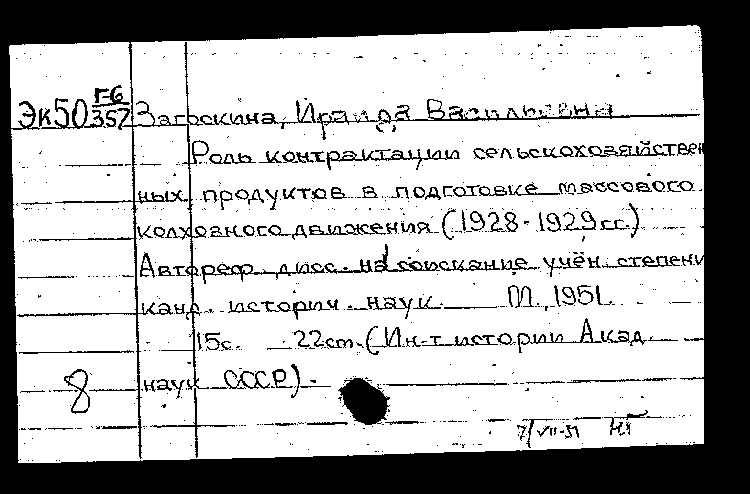 Эк50 Г-6/357 Загоскина, Ираида Васильевна
Роль контрактации сельскохозяйствен
ных продуктов в подготовке массового
колхозного движения (1928-1929 гг.)
Автореф. дисс. на соискание учён. степени
канд. историч. наук. М., 1951.
15с. 22см. (Ин-т истории Акад.
8 наук СССР).
7/VII-51